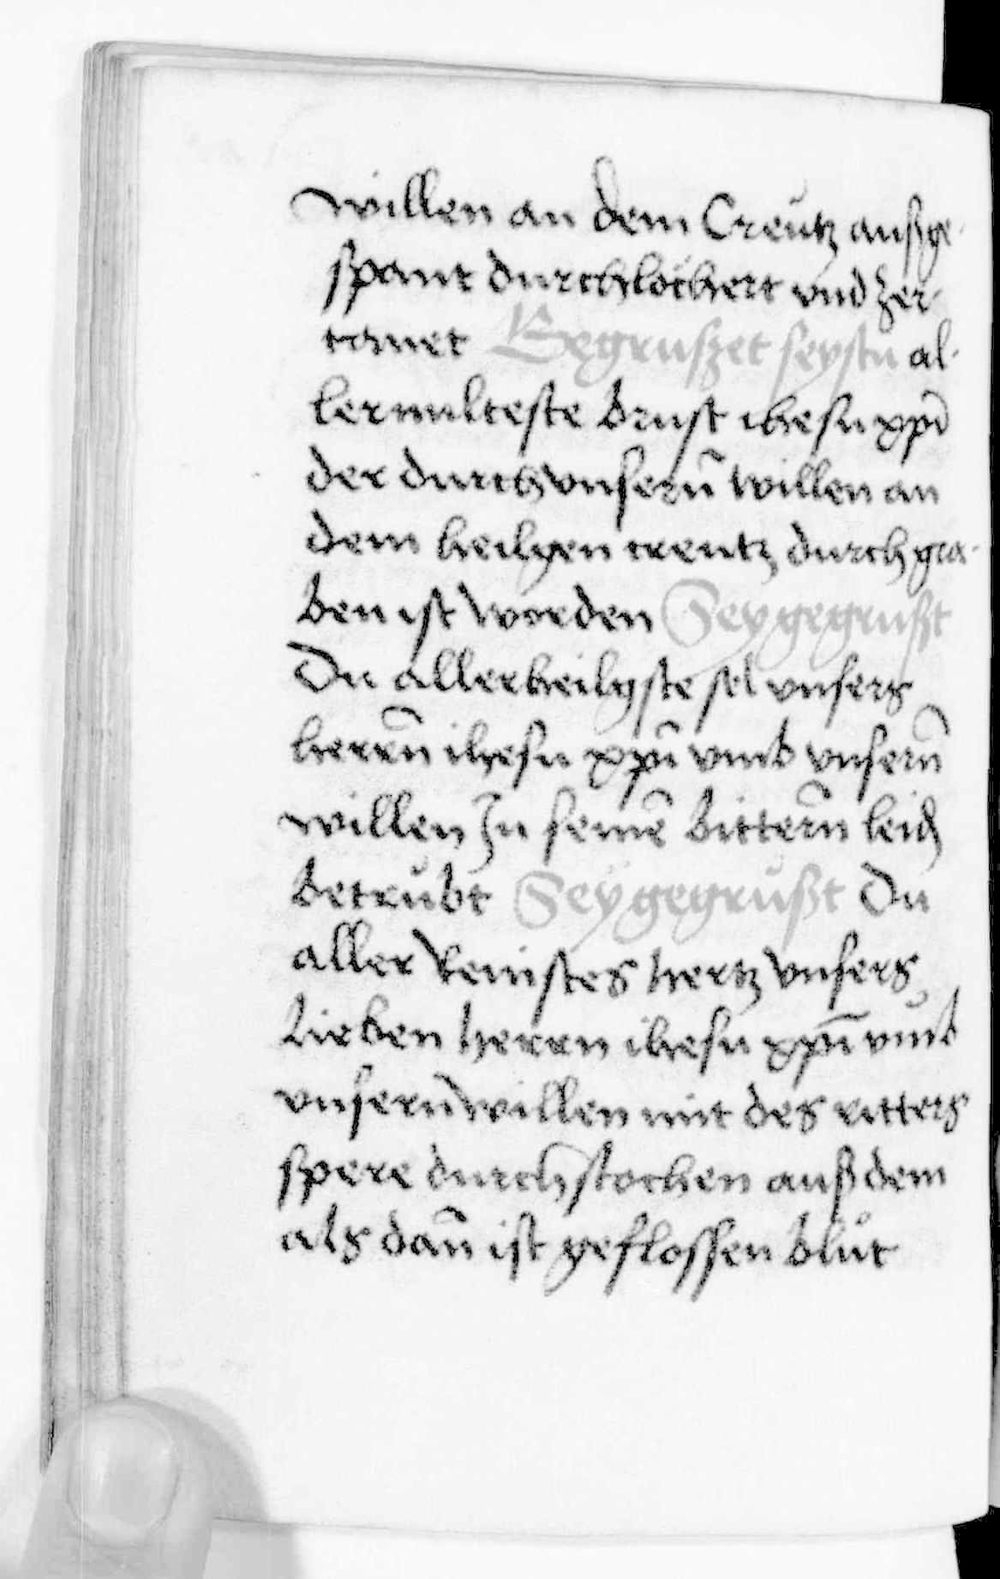 willen an dem Creutz außge-
spant durchlöchert vnd zer-
trnet Begruszet seystu al-
lermilteste brust ihesu xpi
der durch vnsern̄ willen an
dem heilgen creutz durch gra-
ben ist worden Sey gegrußt
Du allerheilgste sel vnsers
herrn̄ ihesu xpī vmb vnsern̄
willen Zu seinē bittern̄ leid
betrübt Sey gegrüßt Du
aller Reinistes hertz vnsers
Lieben herrn ihesu xpī vmb
vnsern willen mit des ritters
spere durchstochen auß dem
als dan̄ ist geflossen blůt